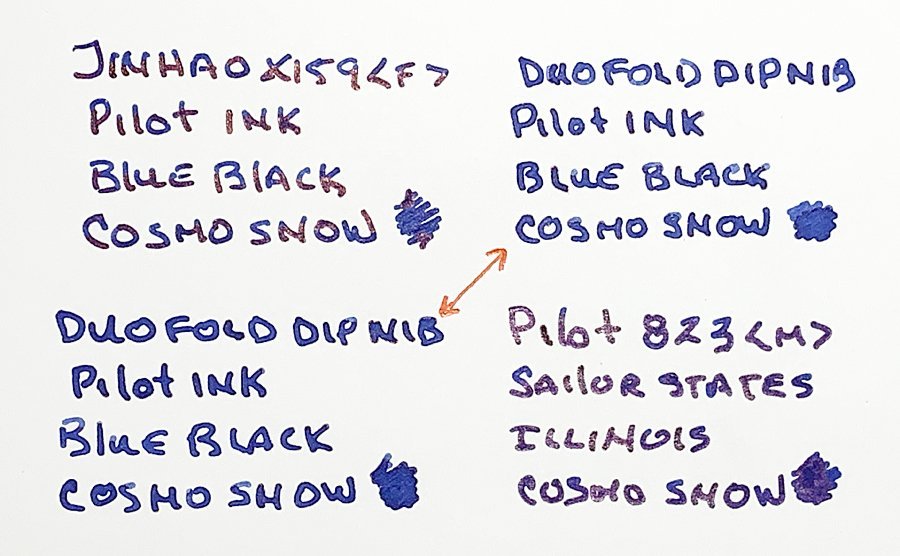 JINHAO X159 <F>
Pilot INK
BLUE BLACK
COSMO SNOW
DUOFOLD DIP NIB
Pilot INK
BLUE BLACK
COSMO SNOW
DUOFOLD DIP NIB
Pilot INK
BLUE BLACK
COSMO SNOW
Pilot 823 <M>
SAILOR STATES
ILLINOIS
COSMO SNOW